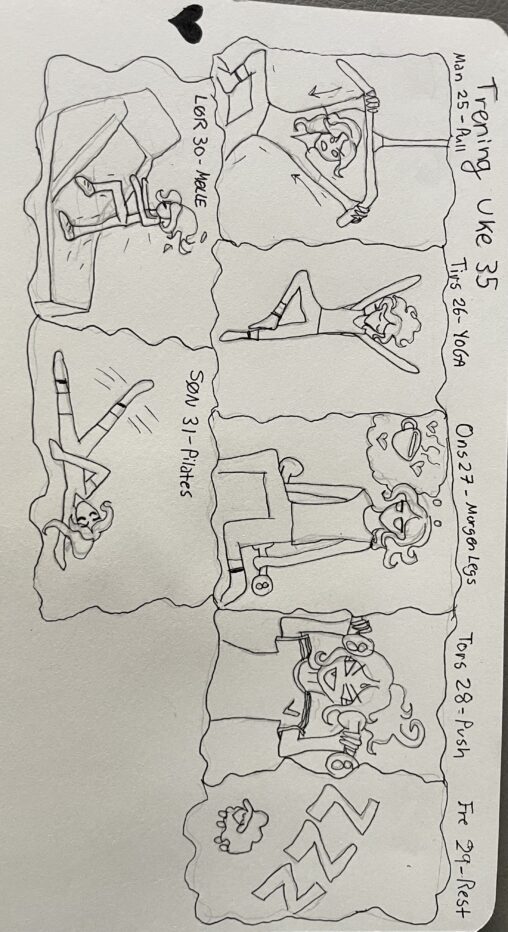 Trening uke 35
Man 25-Pull
Tirs 26-YOGA
Ons 27-Morgen Legs
8
Tors 28-Push
8
8
Fre 29-Rest
ZZZ
LØR 30-MØLLE
SØN 31-Pilates